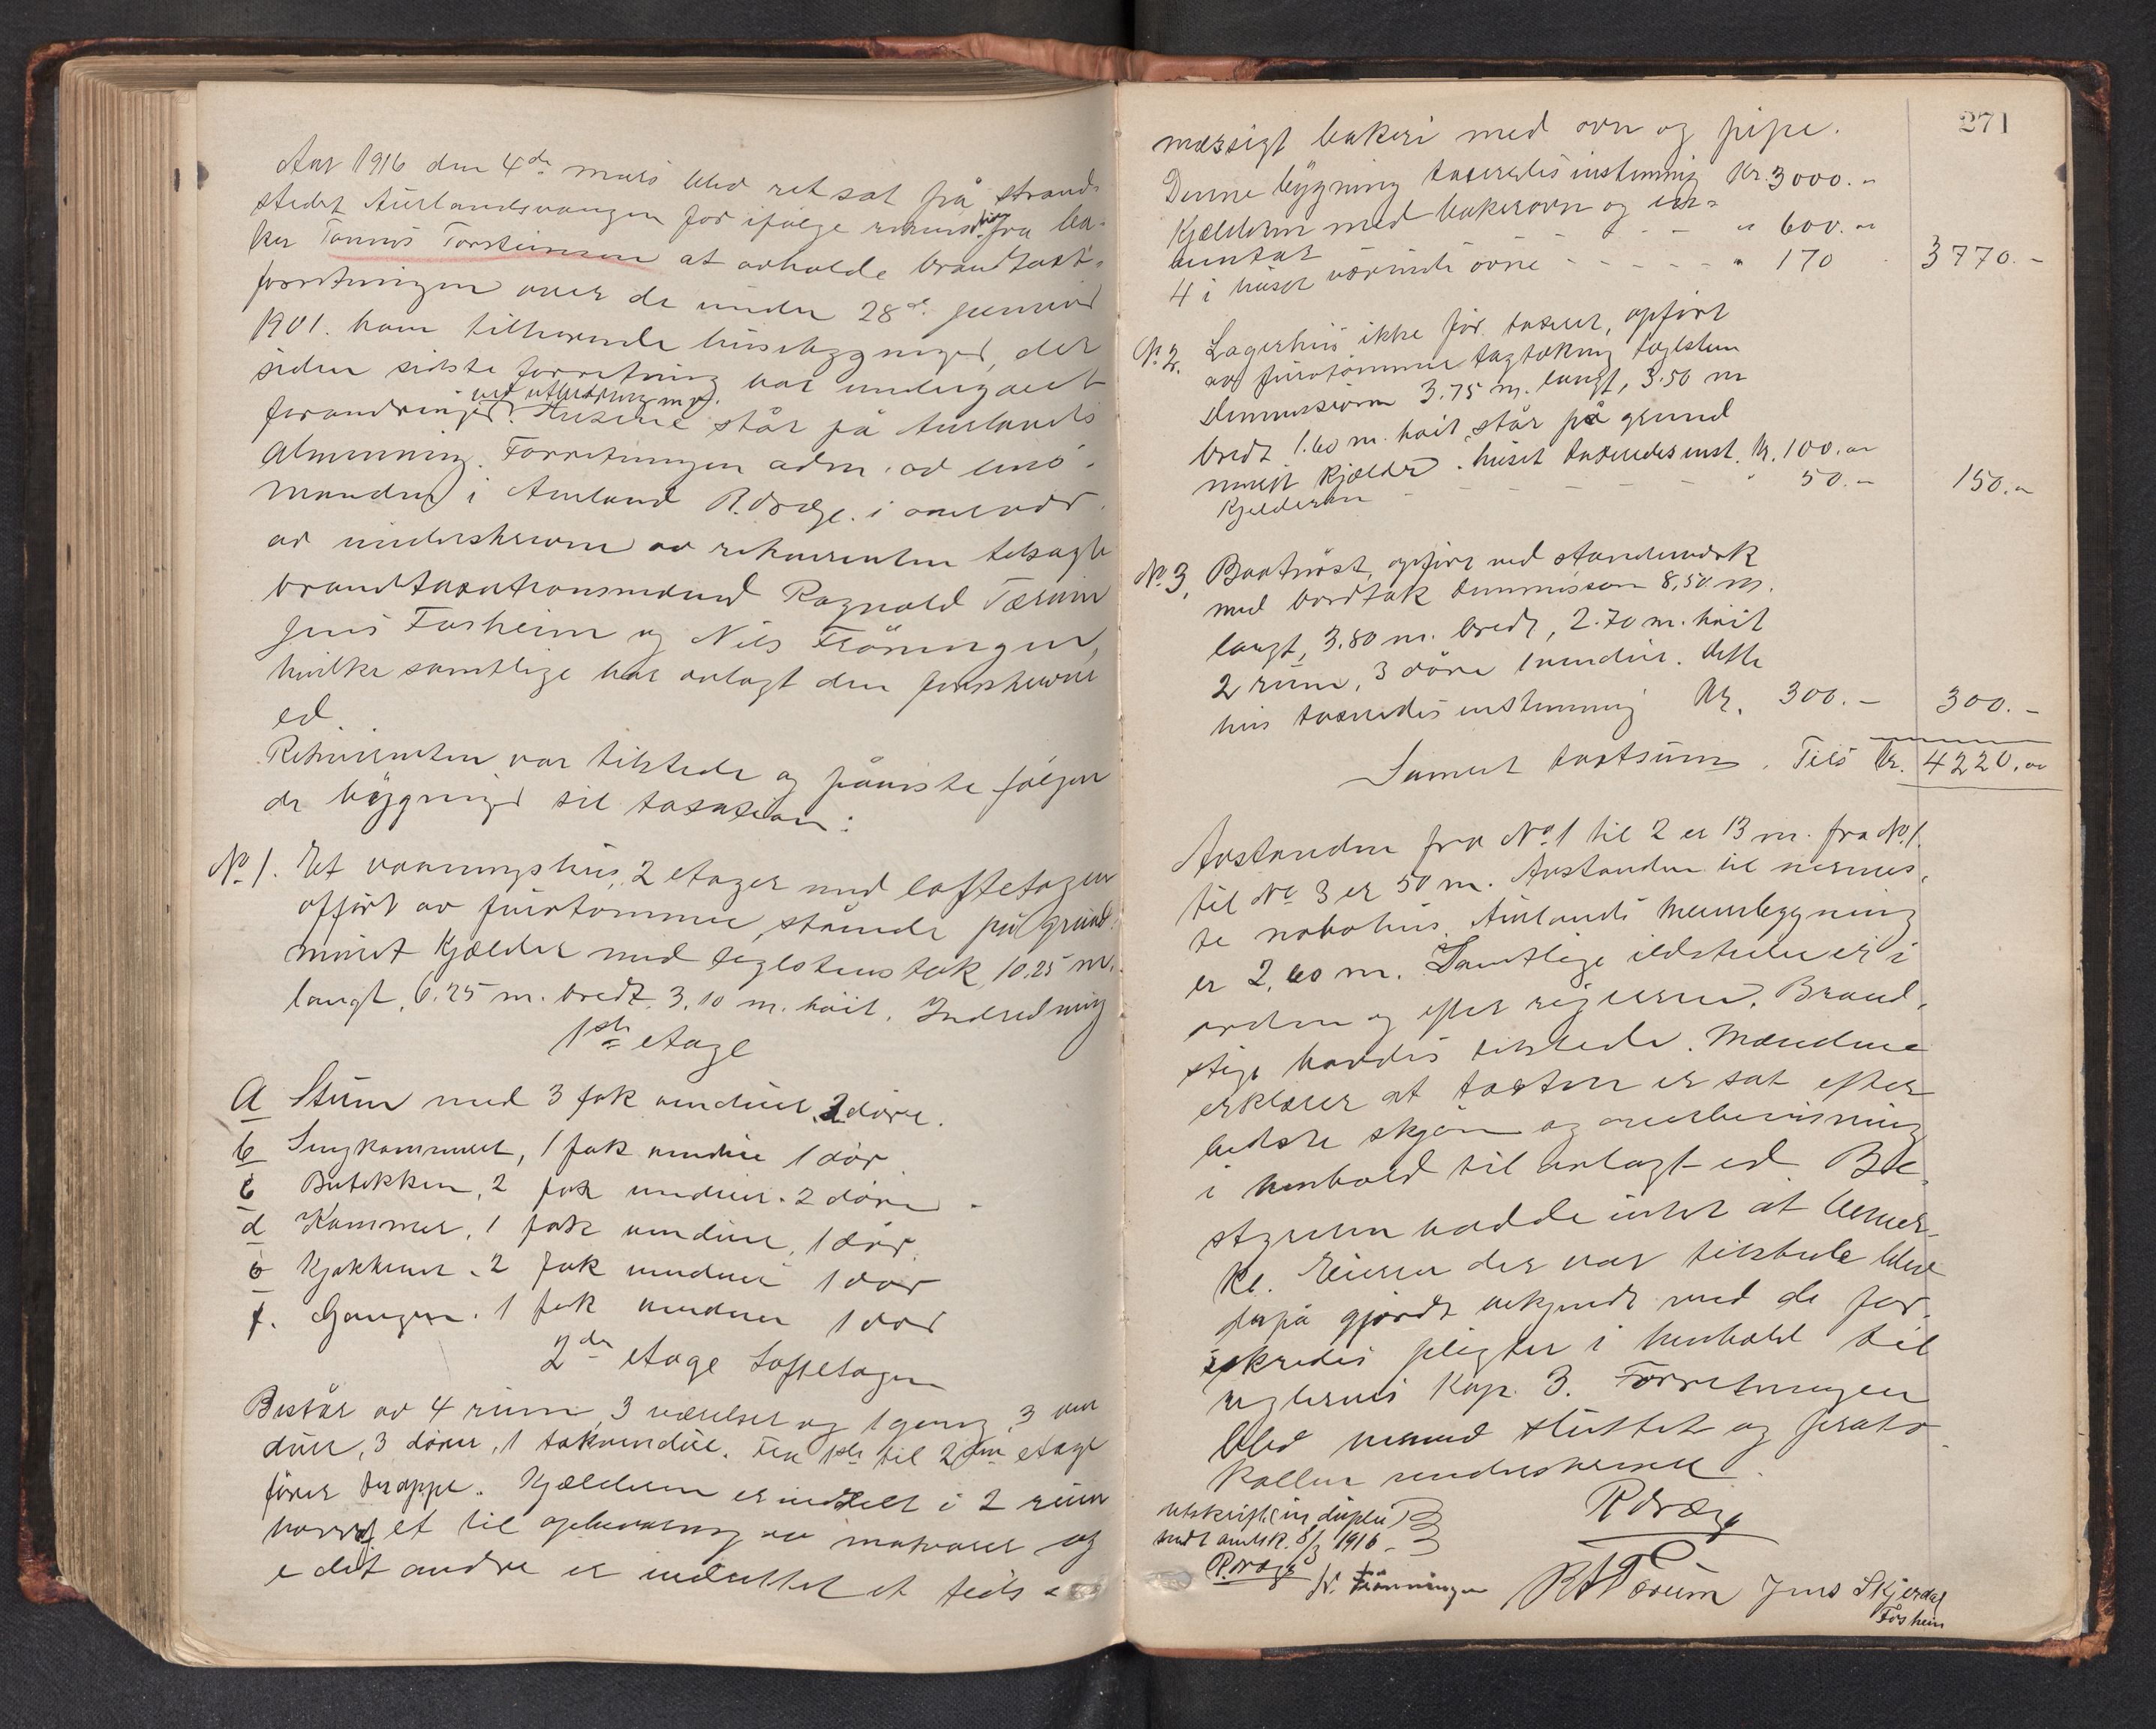 Aar 1916 den 4de mars blev ret sat på strand-
stedet Aurlandsvangen for ifølge rekvisition fra ba-
ker Tomas Torsteinson at avholde brandtakst-
forretningen over de under 28de januar
1901. ham tilhørende husebygninger, der
siden sidste forretning har undergaaet
forandringer ved utbedring m.v. Husene står på Aurlands
Almenning. Forretningen adm. av lens-
manden i Aurland R. Dræge i overvær
av underskrevne av rekvirenten tilsagte
brandtaxationsmænd Ragnvald Tærum
Jens Fosheim og Nils Frönningen,
hvilke samtlige har avlagt den foreskrevne
ed.
Rekvirenten var tilstede og påviste følgen
de bygninger til taxation:
No 1. Et vaaningshus, 2 etager med loftetagen
opført av furutømmer, stående på grund-
muret kjælder med teglstenstak 10.25 m.
langt, 6.25 m. bredt, 3.10 m. høit. Indredning
1ste etage
a Stuen med 3 fak vinduer, 2 döre.
b Sengkammeret, 1 fak vindue 1 dör
c Butikken, 2 fak vinduer. 2 döre.
d Kammer, 1 fak vindue, 1 dör.
e Kjøkkenet. 2 fak vinduer 1 dör
f. Gangen. 1 fak vinduer 1 dör
2den etage Loftetagen
Består av 4 rum, 3 værelser og 1 gang, 3 vin
duer, 3 döre, 1 takvindue. Fra 1ste til 2den etage
fører trappe. Kjælderen er inddelt i 2 rum
hvorav et til opbevaring av matvarer og
i det andre er indrettet et tids-
271
mæssigt bakeri med ovn og pipe.
Denne bygning taxeredes instemmig Kr. 3000.-
Kjælderen med bakerovn og
600.-
4 i huset værende ovne - - - - - " 170 3770.-
No 2. Lagerhus ikke før taxeret, opført
av furutømmer tagtækning taglsten
Dimensionen 3.75 m. langt, 3.50 m
bredt 1.60 m. høit, står på grund
muret kjælder. Huset taxeredes inst. Kr. 100.-
Kjelderen - - - - - - " 50.- 150.-
No 3. Baatnøst, opført med standerverk
med bordtak dimension 8,50 m.
langt, 3.80 m. bredt, 2.70 m. høit
2 rum, 3 döre 1 vindue. Dette
hus taxeredes enstemmig Kr. 300.- 300.-
Samlet takstsum. Tils Kr. 4220.-
Avstanden fra No 1 til 2 er 13 m. fra No 1.
til No 3 er 50 m. Avstanden til nærmes-
te nabohus, Aurlands
er 2,60 m. Samtlige ildsteder er i
orden og efter reglerne. Brand-
stige havdes tilstede. Mændene
erklærer at taksten er sat efter
bedste skjøn og overbevisning
i henhold til avlagt ed. Be-
styreren hadde intet at bemer-
ke. Eieren der var tilstede blev
derpå gjordt bekjendt med de for-
sikredes pligter i henhold til
reglernes Kap. 3. Forretningen
blev hermed sluttet og proto-
kollen underskrevet.
utskrift (in duplo)
sendt amtsk. 8/3 1916
R. Dræge
R Dræge
N. Frönningen R Tærum Jens Skjerdal
Fosheim